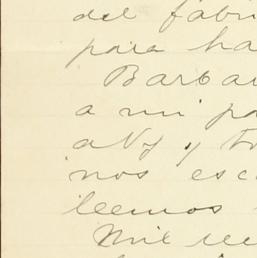 del fabri
para ha
Barbar
a mi pa
y
nos esc
leemos
Mil re